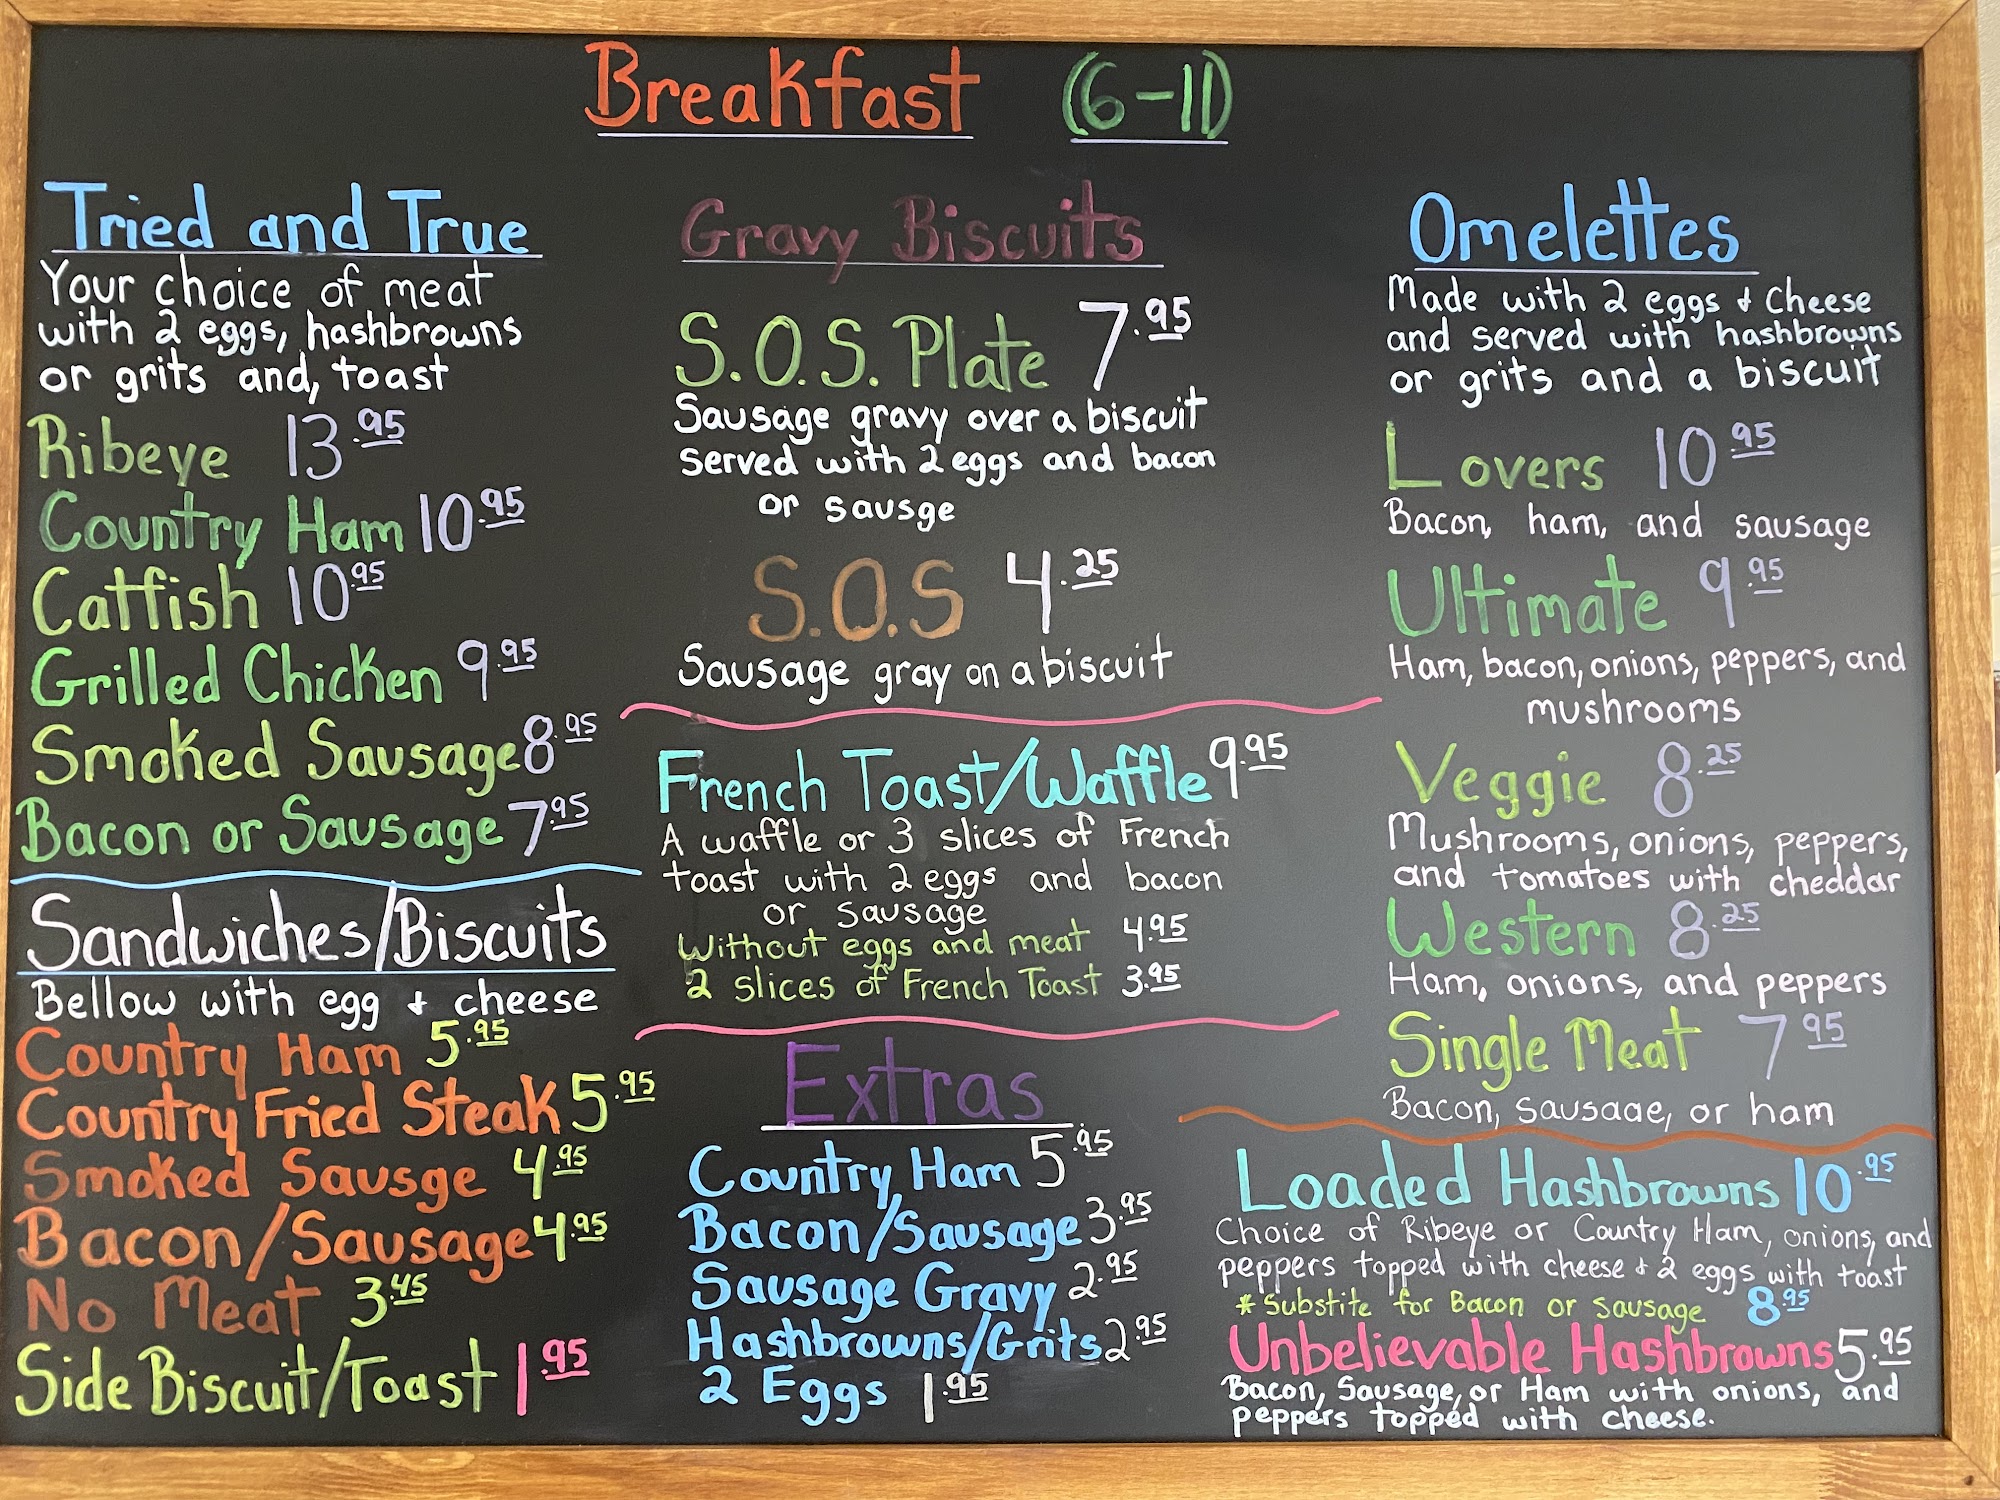 Breakfast (6-11)
Tried and True
Your choice of meat
with 2 eggs, hashbrowns
or grits and, toast
Ribeye 13.95
Country Ham 10.95
Catfish 10.95
Grilled Chicken 9.95
Smoked Sausage 8.95
Bacon or Sausage 7.95
Sandwiches/Biscuits
Bellow with egg & cheese
Country Ham 5.95
Country Fried Steak 5.95
Smoked Sausge 4.95
Bacon/Sausage 4.95
No Meat 3.45
Side Biscuit/Toast 1.95
Gravy Biscuits
S.O.S. Plate 7.95
Sausage gravy over a biscuit
served with 2 eggs and bacon
or sausge
S.O.S 4.25
Sausage gray on a biscuit
French Toast/Waffle 9.95
A waffle or 3 slices of French
toast with 2 eggs and bacon
or sausage
Without eggs and meat 4.95
2 slices of French Toast 3.95
Extras
Country Ham 5.95
Bacon/Sausage 3.95
Sausage Gravy 2.95
Hashbrowns/Grits 2.95
2 Eggs 1.95
Omelettes
Made with 2 eggs & Cheese
and served with hashbrowns
or grits and a biscuit
Lovers 10.95
Bacon, ham, and sausage
Ultimate 9.95
Ham, bacon, onions, peppers, and
mushrooms
Veggie 8.25
Mushrooms, onions, peppers,
and tomatoes with cheddar
Western 8.25
Ham, onions, and peppers
Single Meat 7.95
Bacon, sausage, or ham
Loaded Hashbrowns 10.95
Choice of Ribeye or Country Ham, onions, and
peppers topped with cheese & 2 eggs with toast
* Substite for Bacon or Sausage 8.95
Unbelievable Hashbrowns 5.95
Bacon, Sausage, or Ham with onions, and
peppers topped with cheese.